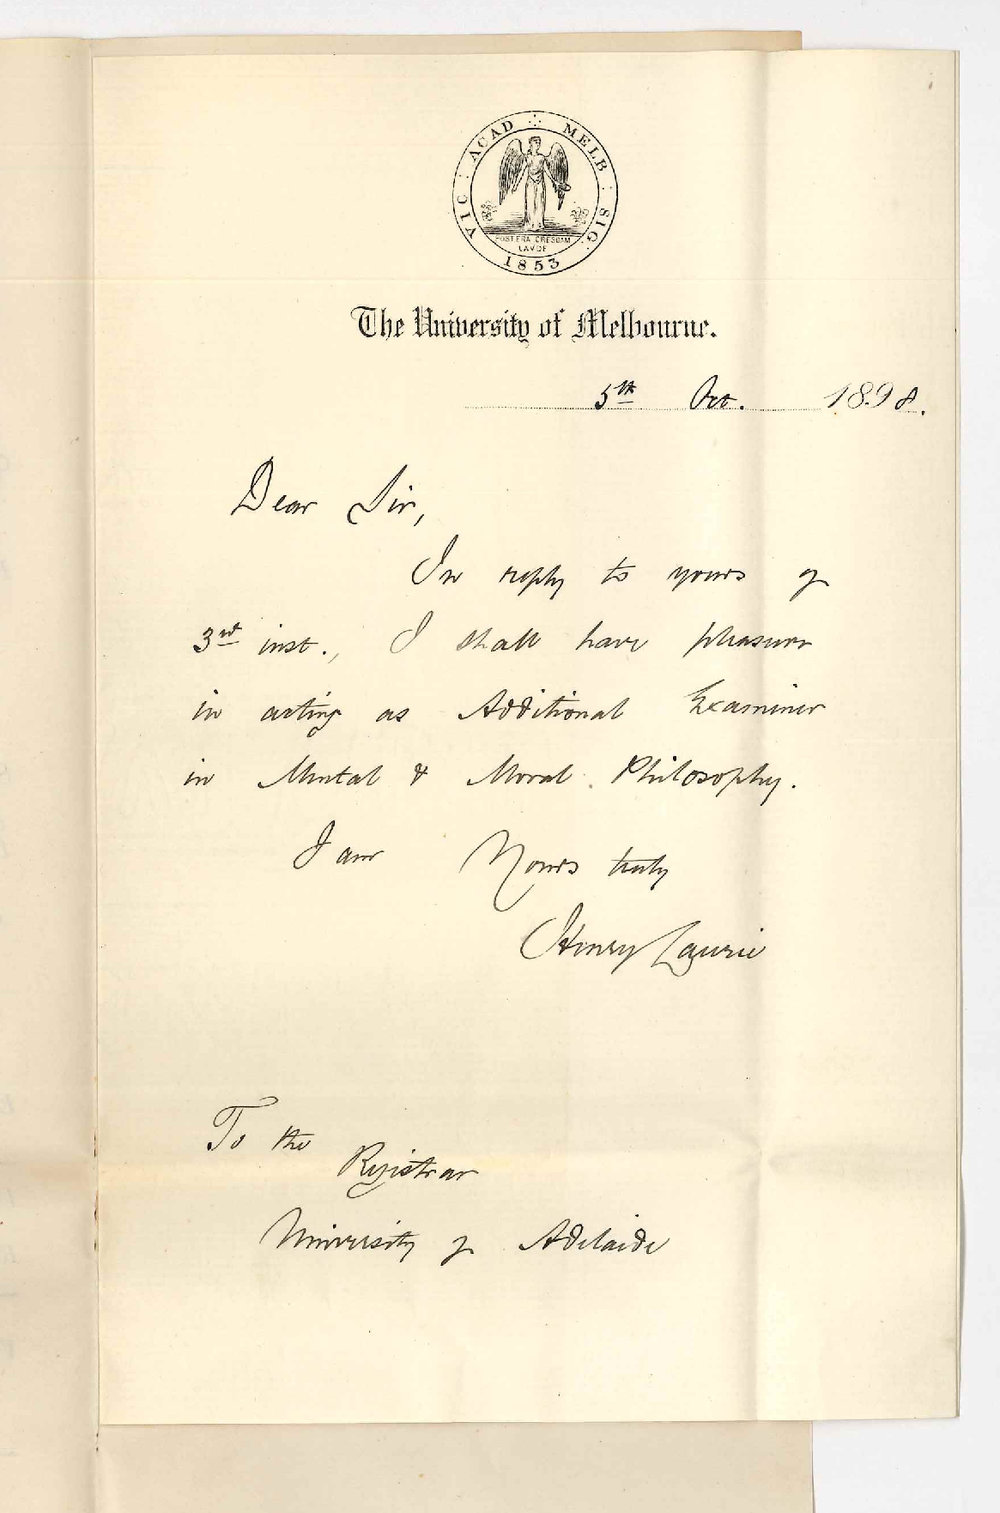 VIC : ACAD ∴ MELB : SIG :
POSTERA CRESCAM
LAVDE
1853
The University of Melbourne.
5th Oct. 1898.
Dear Sir,
In reply to yours of
3rd inst., I shall have pleasure
in acting as Additional Examiner
in Mental & Moral Philosophy.
I am Yours truly
Henry Laurie
To the
Registrar
University of Adelaide